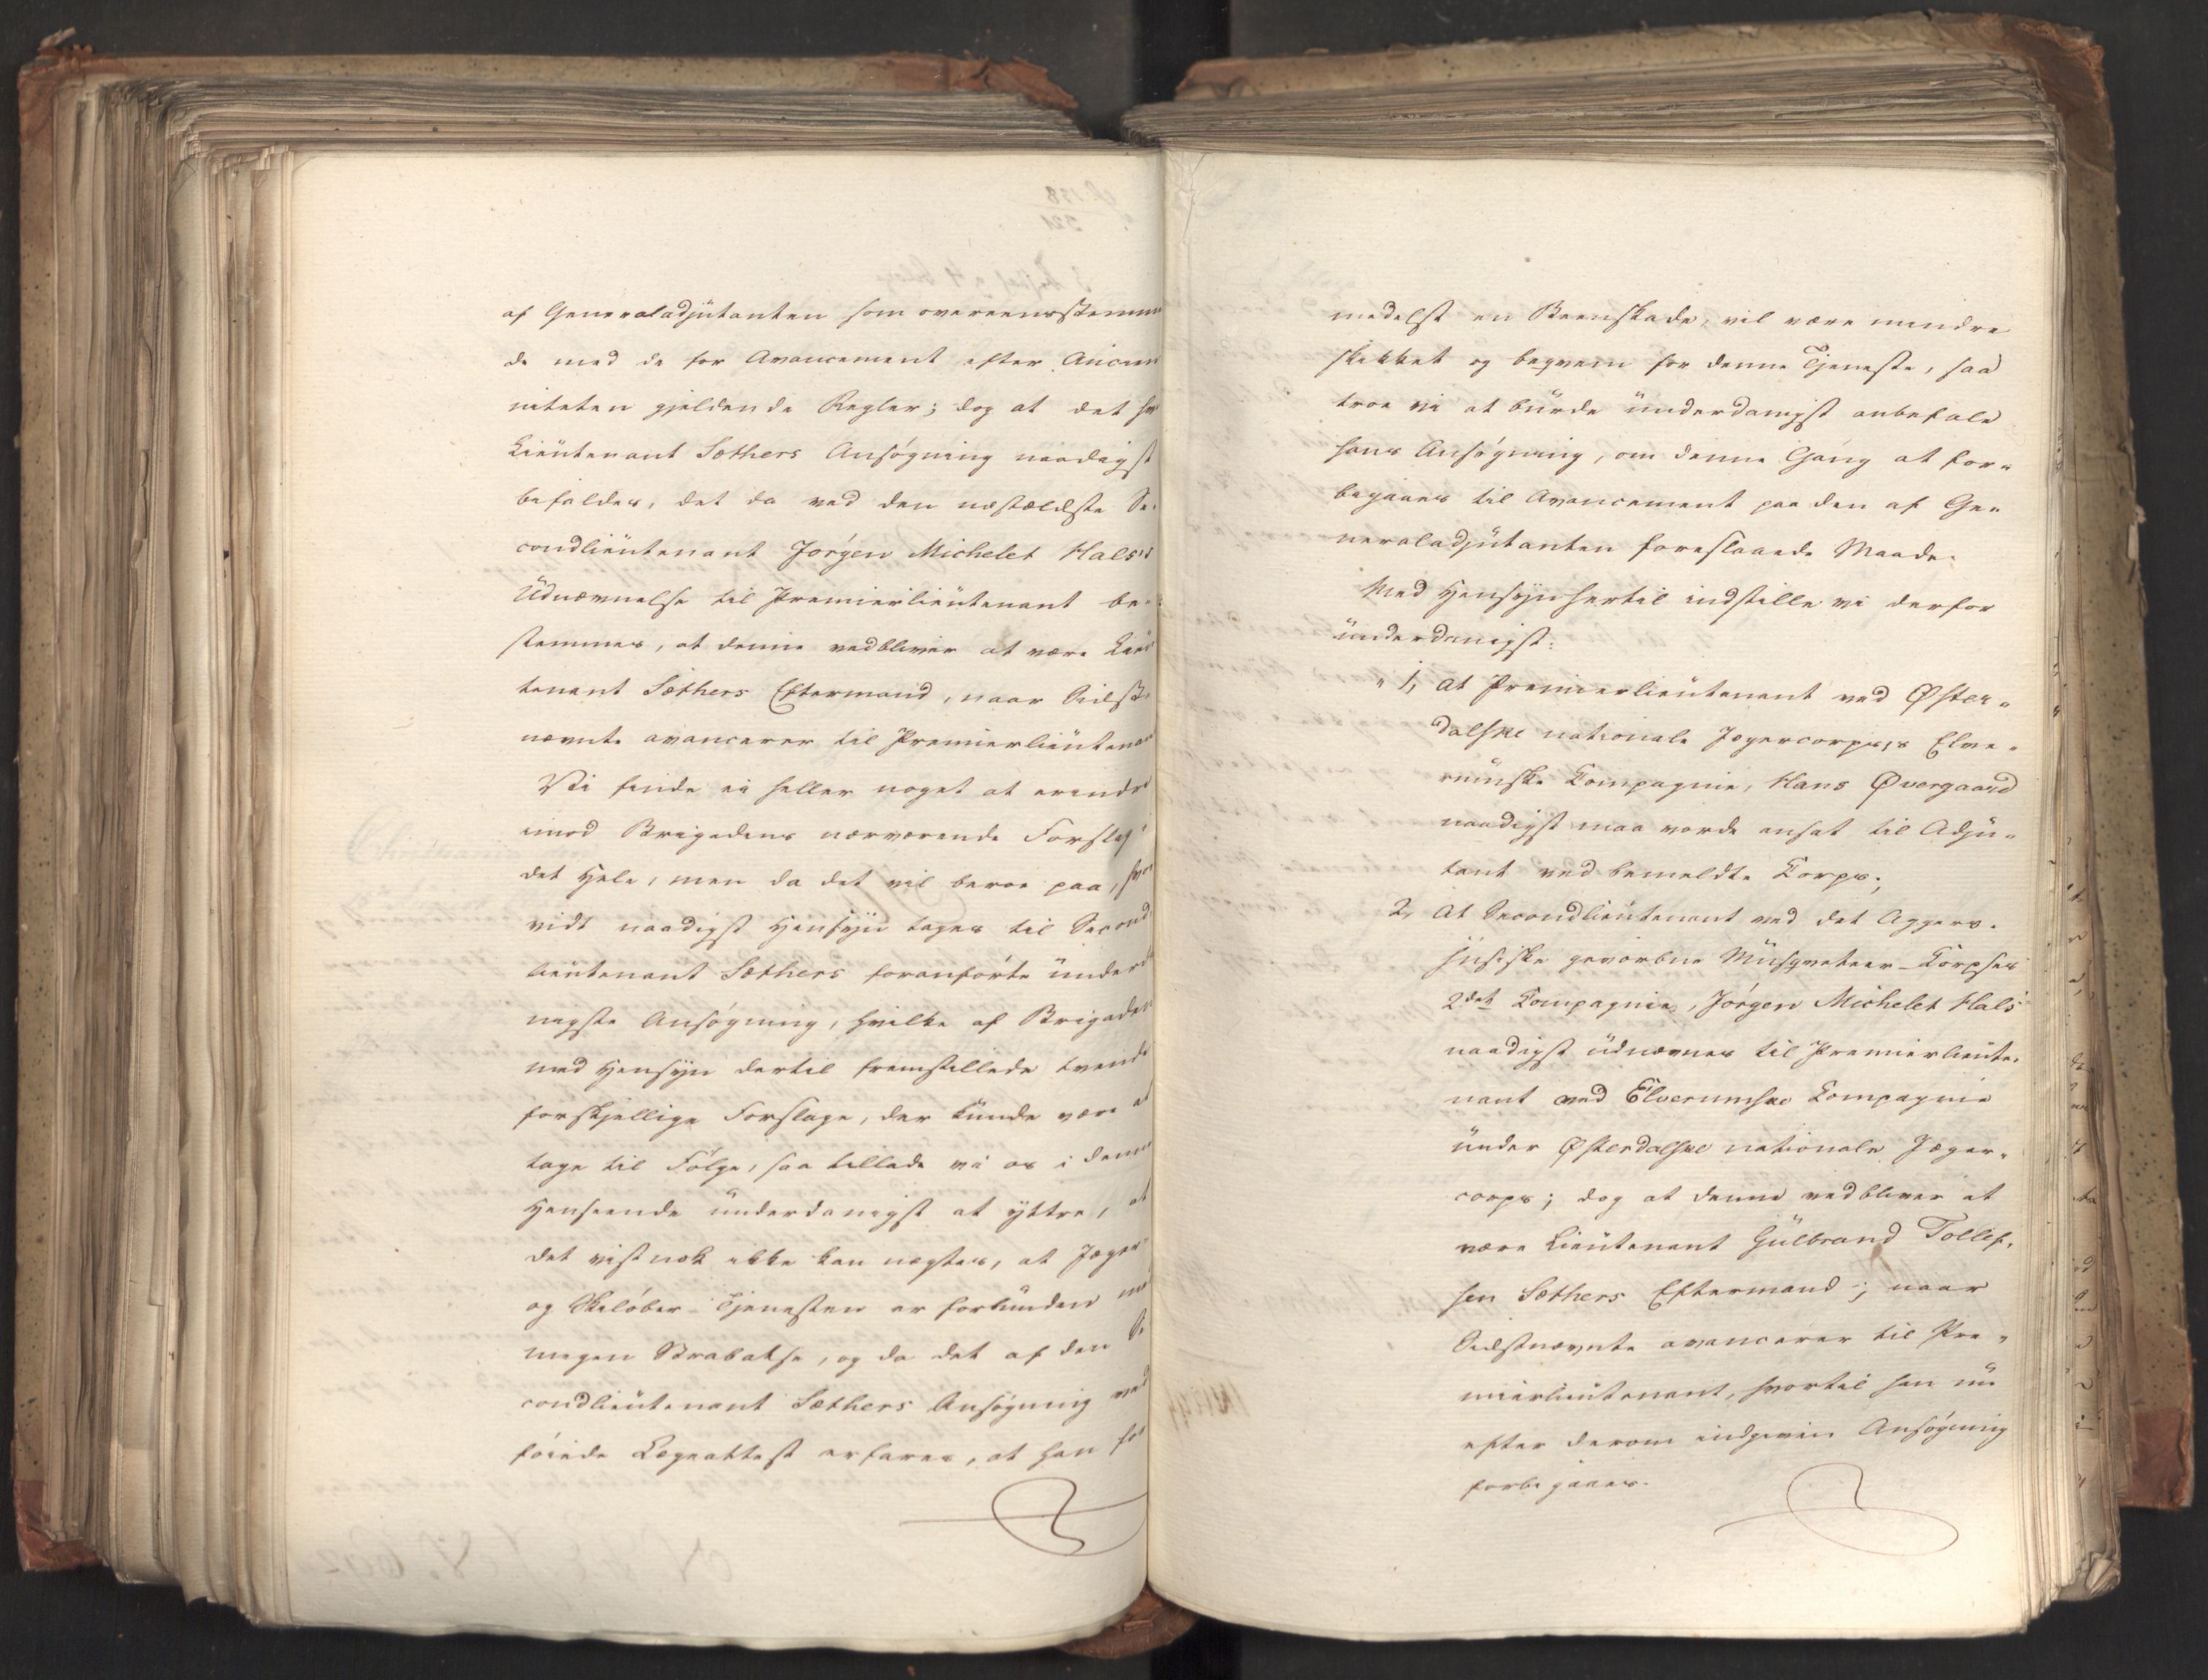 af Generaladjütanten som overeensstemmen
de med de for Avancement efter Ancien
niteten gjeldende Regler; dog at det hvis
Lieutenant Sæthers Ansøgning naadigst
befaldes, det da ved den næstældste Se-
condlieutenant Jørgen Michelet Hals's
Udnævnelse til Premierlieutenant be-
stemmes, at denne vedbliver at være Lieu
tenant Sæthers Eftermand, naar Sidst-
nævnte avancerer til Premierlieutenant
Vi finde ei heller noget at erindre
imod Brigadens nærværende Forslag i
det Hele, men da det vil beroe paa, hvor
vidt naadigst Hensyn tages til Second
lieutenant Sæthers foranførte underda
nigste Ansøgning, hvilke af Brigaden
med Hensyn dertil fremstillede tvende
forskjellige Forslage, der kunde være at
tage til Følge, saa tillade vi os i denne
Henseende underdanigst at yttre, at
det vistnok ikke kan negtes, at Jæger-
og Skiløber-Tjenesten er forbunden med
megen Strabatse, og da det af den Se
condlieutenant Sæthers Ansøgning ved
føiede Lægeattest erfares, at han for
medelst en Beenskade, vil være mindre
skikket og beqvem for denne Tjeneste, saa
troe vi at burde underdanigst anbefale
hans Ansøgning, om denne Gang at for-
begaaes til Avancement paa den af Ge-
neraladjütanten foreslaaede Maade.
Med Hensyn hertil indstille vi derfor
underdanigst:
" 1, At Premierlieutenant ved Øster-
dalske nationale Jægercorps's Elve-
rumske Compagnie, Hans Øvergaard
naadigst maa vorde ansat til Adju-
tant ved bemeldte Corps;
2, At Secondlieutenant ved det Aggers-
husiske gevorbne Musqveteer-Corpses
2det Compagnie, Jørgen Michelet Hals
naadigst udnævnes til Premierlieute-
nant ved Elverumske Compagnie
under Østerdalske nationale Jæger-
corps; dog at denne vedbliver at
være Lieutenant Gulbrand Tollef-
sen Sæthers Eftermand; naar
Sidstnævnte avancerer til Pre-
mierlieutenant, hvortil han nu
efter derom indgiven Ansøgning
forbigaaes.